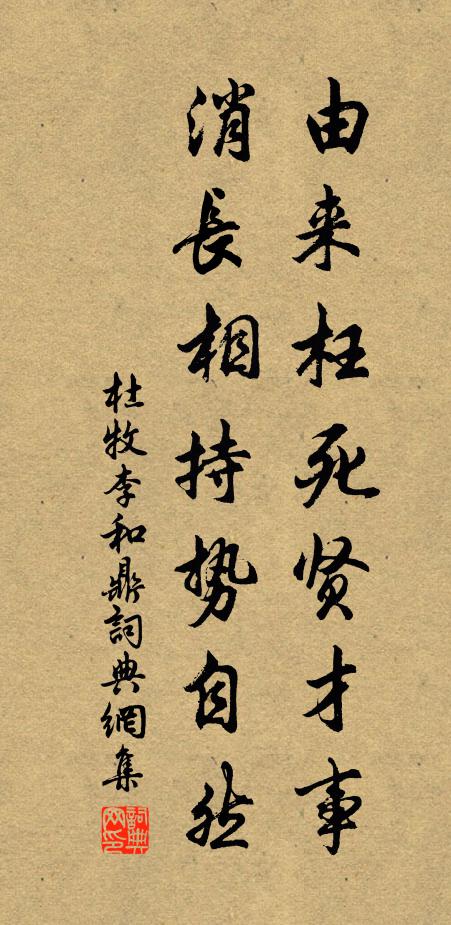 由来枉死贤才事
消長相持势自然
杜牧李和鼎詞典網集
詞典
网印